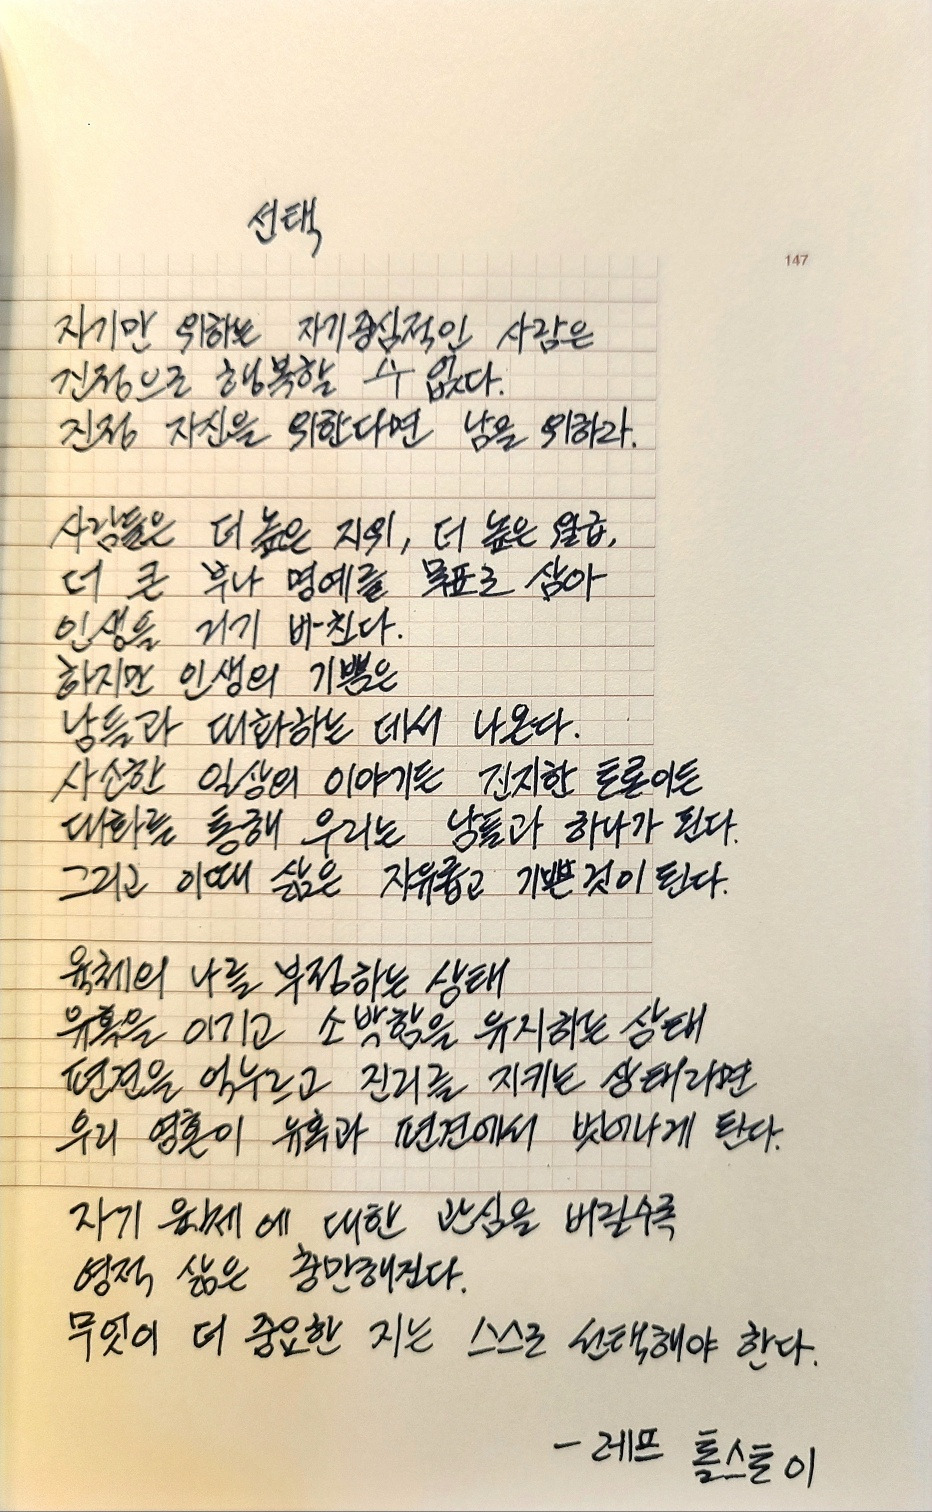 선택
147
자기만 위하는 자기중심적인 사람은
진정으로 행복할 수 없다.
진정 자신을 위한다면 남을 위하라.
사람들은 더 높은 지위, 더 높은 월급,
더 큰 부나 명예를 목표로 삼아
인생을 거기 바친다.
하지만 인생의 기쁨은
남들과 대화하는 데서 나온다.
사소한 일상의 이야기든 진지한 토론이든
대화를 통해 우리는 남들과 하나가 된다.
그리고 이때 삶은 자유롭고 기쁜 것이 된다.
육체의 나를 부정하는 상태
유혹을 이기고 소박함을 유지하는 상태
편견을 억누르고 진리를 지키는 상태라면
우리 영혼이 유혹과 편견에서 벗어나게 된다.
자기 육체에 대한 관심을 버릴수록
영적 삶은 충만해진다.
무엇이 더 중요한 지는 스스로 선택해야 한다.
- 레프 톨스토이